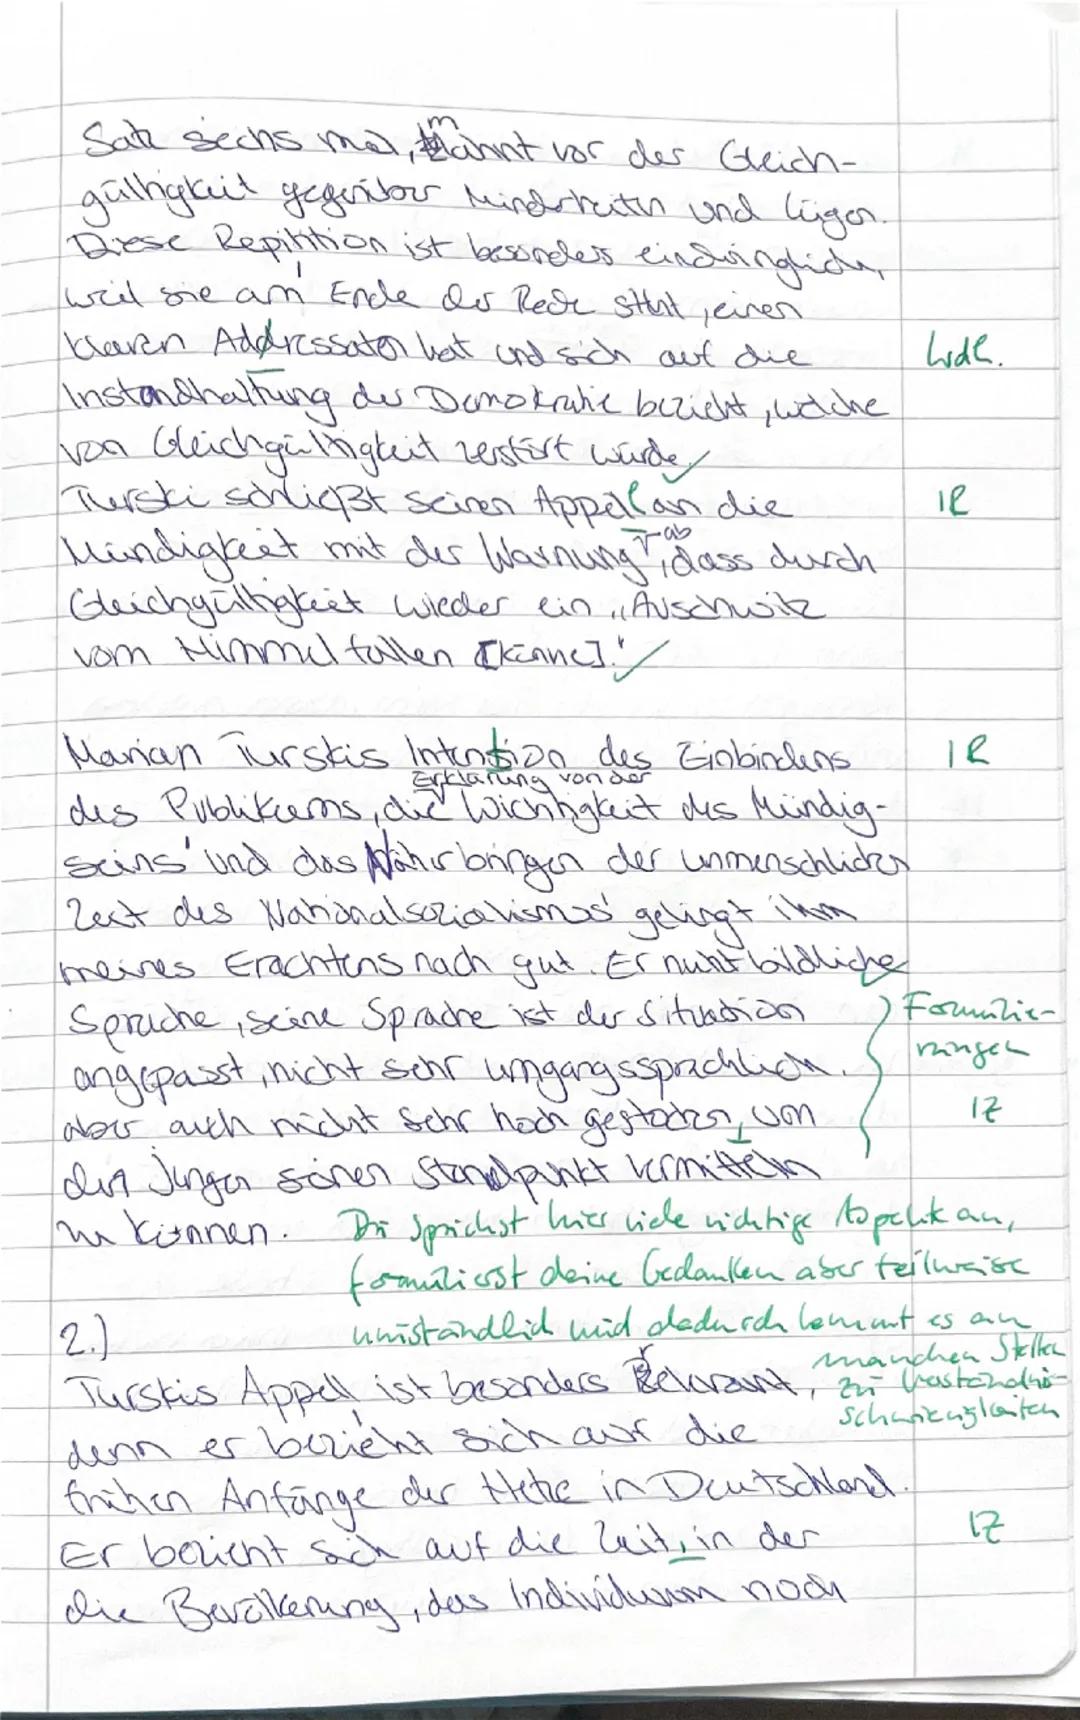 Satz sechs mal, mahnt vor der Gleich-
gültigkeit gegenüber Minderheiten und Lügen.
Diese Repitition ist besonders eindringlich,
weil sie am Ende der Rede steht, einen
klaren Addressaten hat und sich auf die
Wdh.
Instandhaltung der Demokratie bezieht, welche
von Gleichgültigkeit zerstört würde.
Turski schließt seinen Appell an die
1R
Mündigkeit mit der Warnung ab, dass durch
Gleichgültigkeit wieder ein „Auschwitz
vom Himmel fallen [könne]."
Marian Turskis Intention des Einbindens
1R
des Publikums, die Erklärung von der Wichtigkeit des Mündig-
seins und das Näherbringen der unmenschlichen
Zeit des Nationalsozialismus gelingt ihm
meines Erachtens nach gut. Er nutzt bildliche
Sprache, seine Sprache ist der Situation
Formulie-
rungen
angepasst, nicht sehr umgangssprachlich.
aber auch nicht sehr hoch gestochen, um
1Z
den Jungen seinen Standpunkt vermitteln
zu können.
Du sprichst hier viele wichtige Aspekte an,
formulierst deine Gedanken aber teilweise
umständlich und dadurch kommt es an
manchen Stellen
zu Verständnis-
schwierigkeiten
2.)
Turskis Appell ist besonders relevant,
denn er bezieht sich auf die
frühen Anfänge der Hetze in Deutschland.
Er bezieht sich auf die Zeit, in der
1Z
die Bevölkerung, das Individuum noch